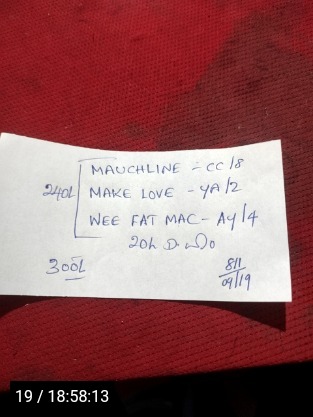 MAUCHLINE - CC/8
240L MAKE LOVE - YA/2
WEE FAT MAC - AY/4
20L
300L
811
09/19
19 / 18:58:13